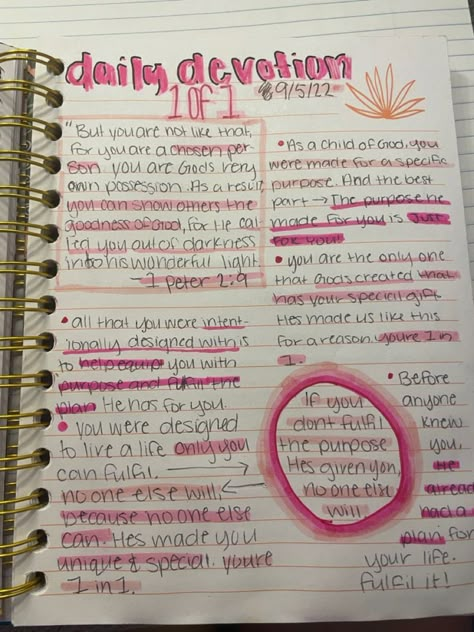 daily devotion
1 OF 1
9/5/22
"But you are not like that,
for you are a chosen per
son you are Gods very
own possession. As a result
you can show others the
goodness of God, for He cal-
led you out of darkness
into his wonderful light
-1 Peter 2:9
• As a child of God, you
were made for a specific
purpose. And the best
part → The purpose he
made for you is Just
for you!
• you are the only one
that Gods created that
has your special gift
Hes made us like this
for a reason. youre 1 in
1.
• all that you were intent-
ionally designed with is
to help equip you with
purpose and fulfill the
plan He has for you.
• you were designed
to live a life only you
can fulfil. →
no one else will, ←
because no one else
can. Hes made you
unique & special. youre
1 in 1.
If you
dont fulfil
the purpose
Hes given you,
no one else
will
• Before
anyone
knew
you,
He
already
had a
plan for
your life.
fulfil it!